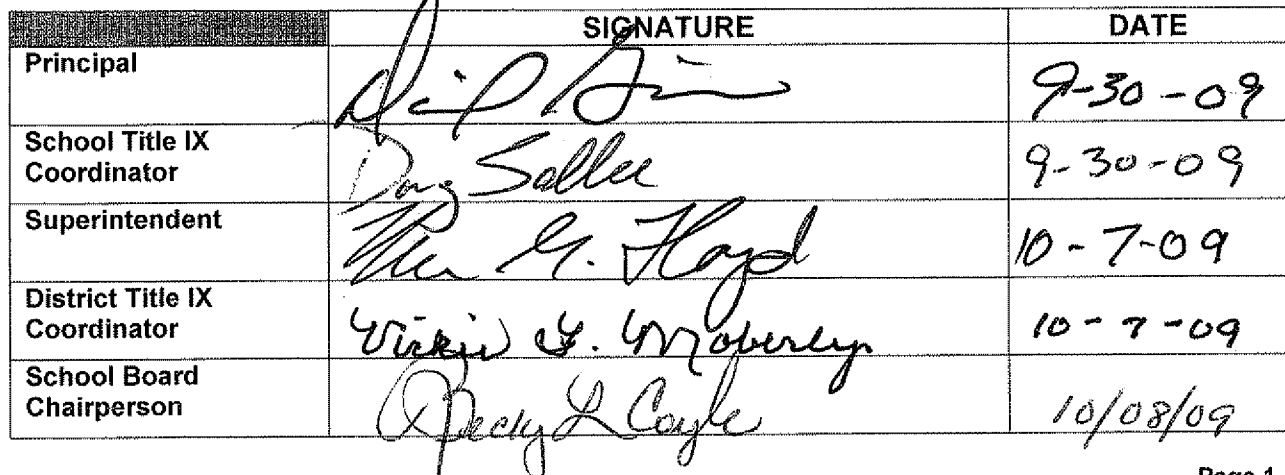 SIGNATURE DATE
Principal 9-30-09
School Title IX
Coordinator Doug Sallee 9-30-09
Superintendent G. Floyd 10-7-09
District Title IX
Coordinator Vickie F. Moberly 10-7-09
School Board
Chairperson Becky L Coyle 10/08/09
Page 1